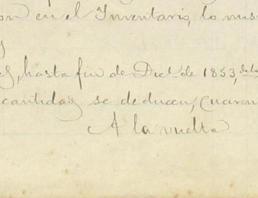 on en el Inventario, lo mis
y
hasta fin de Dicb. de 1853,
cantidad se deducen, cuaren
A la vuelta